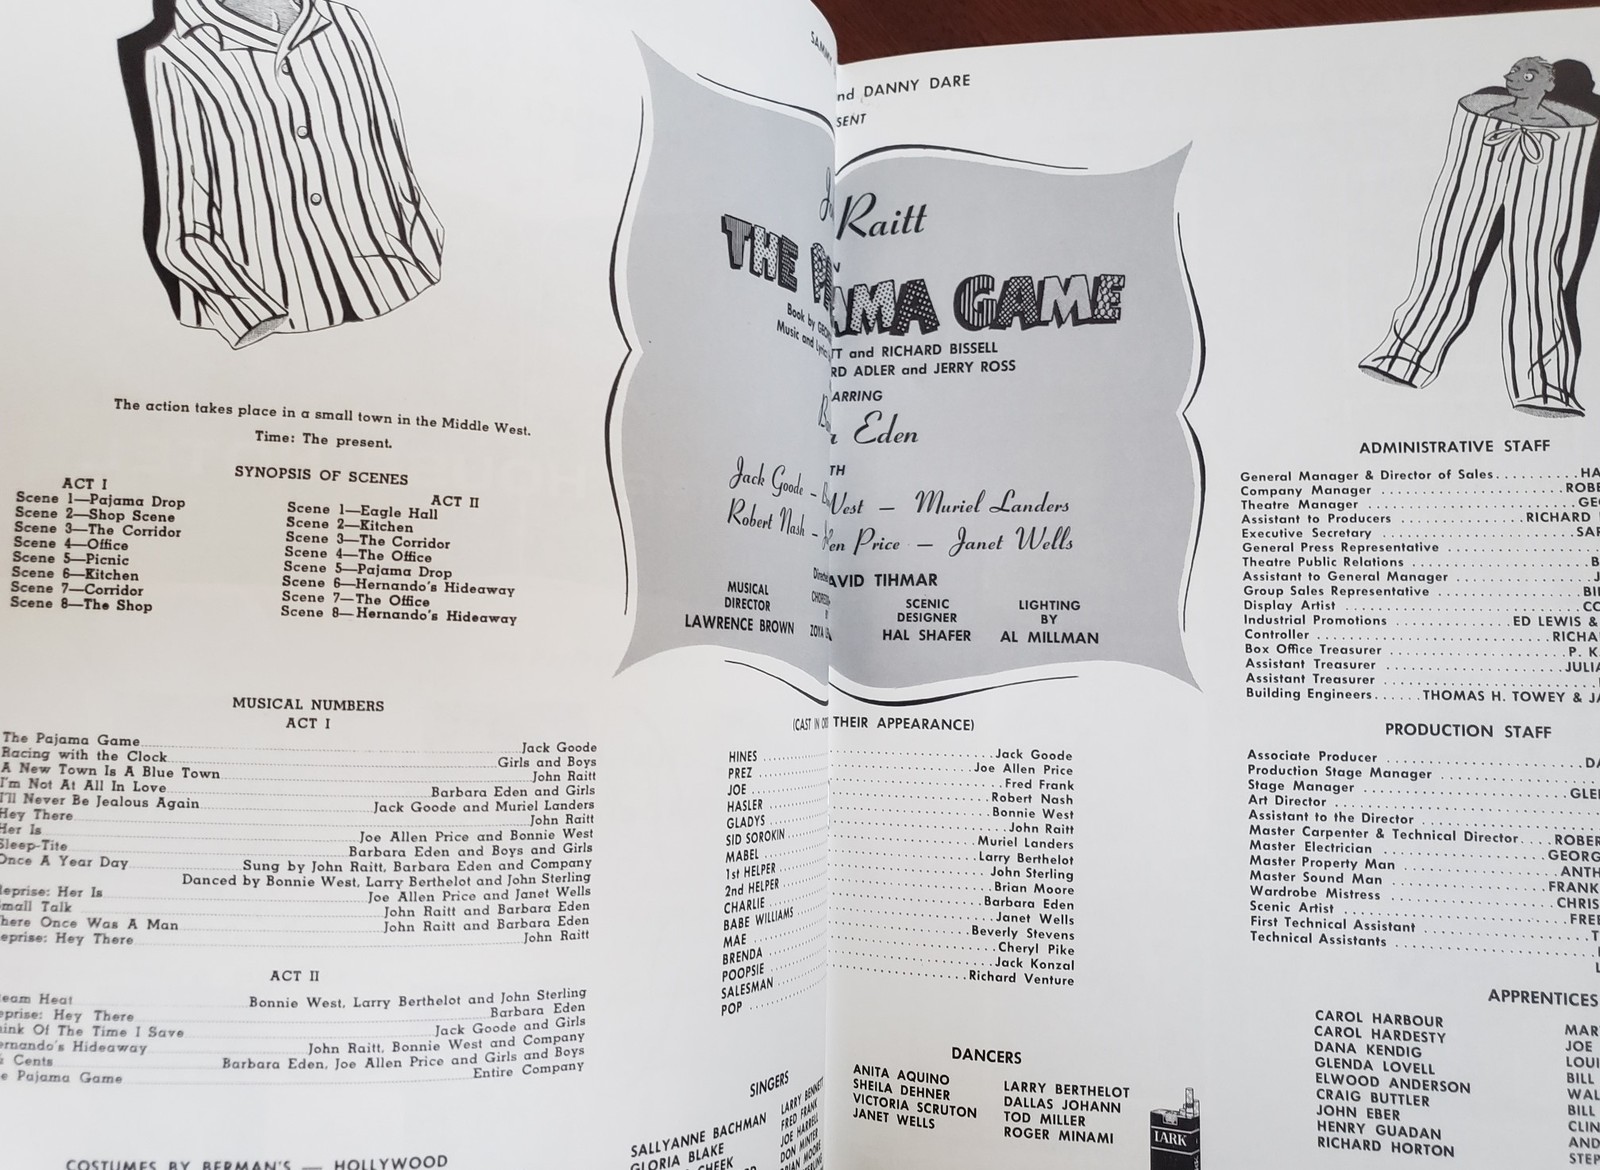 The action takes place in a small town in the Middle West.
Time: The present.
SYNOPSIS OF SCENES
ACT I
Scene 1—Pajama Drop
Scene 2—Shop Scene
Scene 3—The Corridor
Scene 4—Office
Scene 5—Picnic
Scene 6—Kitchen
Scene 7—Corridor
Scene 8—The Shop
ACT II
Scene 1—Eagle Hall
Scene 2—Kitchen
Scene 3—The Corridor
Scene 4—The Office
Scene 5—Pajama Drop
Scene 6—Hernando's Hideaway
Scene 7—The Office
Scene 8—Hernando's Hideaway
MUSICAL NUMBERS
ACT I
The Pajama Game Jack Goode
Racing with the Clock Girls and Boys
A New Town Is A Blue Town John Raitt
I'm Not At All In Love Barbara Eden and Girls
I'll Never Be Jealous Again Jack Goode and Muriel Landers
Hey There John Raitt
Her Is Joe Allen Price and Bonnie West
Sleep-Tite Barbara Eden and Boys and Girls
Once A Year Day Sung by John Raitt, Barbara Eden and Company
Danced by Bonnie West, Larry Berthelot and John Sterling
eprise: Her Is Joe Allen Price and Janet Wells
mall Talk John Raitt and Barbara Eden
here Once Was A Man John Raitt and Barbara Eden
eprise: Hey There John Raitt
ACT II
eam Heat Bonnie West, Larry Berthelot and John Sterling
eprise: Hey There Barbara Eden
ink Of The Time I Save Jack Goode and Girls
ernando's Hideaway John Raitt, Bonnie West and Company
Cents Barbara Eden, Joe Allen Price and Girls and Boys
e Pajama Game Entire Company
COSTUMES BY BERMAN'S — HOLLYWOOD
nd DANNY DARE
SENT
Raitt
THE P AMA GAME
Book by
TT and RICHARD BISSELL
Music and Lyrics
RD ADLER and JERRY ROSS
ARRING
Eden
TH
Jack Goode – West — Muriel Landers
Robert Nash – en Price — Janet Wells
AVID TIHMAR
MUSICAL
DIRECTOR
LAWRENCE BROWN
ZOYA
SCENIC
DESIGNER
HAL SHAFER
LIGHTING
BY
AL MILLMAN
(CAST IN THEIR APPEARANCE)
HINES Jack Goode
PREZ Joe Allen Price
JOE Fred Frank
HASLER Robert Nash
GLADYS Bonnie West
SID SOROKIN John Raitt
MABEL Muriel Landers
1st HELPER Larry Berthelot
2nd HELPER John Sterling
CHARLIE Brian Moore
BABE WILLIAMS Barbara Eden
MAE Janet Wells
BRENDA Beverly Stevens
POOPSIE Cheryl Pike
SALESMAN Jack Konzal
POP Richard Venture
SINGERS
SALLYANNE BACHMAN
GLORIA BLAKE
CHEEK
LARRY BENNETT
FRED FRANK
JOE HARRELL
DON MINTER
BRIAN MOORE
DANCERS
ANITA AQUINO
SHEILA DEHNER
VICTORIA SCRUTON
JANET WELLS
LARRY BERTHELOT
DALLAS JOHANN
TOD MILLER
ROGER MINAMI
LARK
ADMINISTRATIVE STAFF
General Manager & Director of Sales HA
Company Manager ROBE
Theatre Manager GEO
Assistant to Producers RICHARD
Executive Secretary SAR
General Press Representative
Theatre Public Relations B
Assistant to General Manager J
Group Sales Representative BIL
Display Artist CO
Industrial Promotions ED LEWIS &
Controller RICHA
Box Office Treasurer P. K.
Assistant Treasurer JULIA
Assistant Treasurer
Building Engineers THOMAS H. TOWEY & JA
PRODUCTION STAFF
Associate Producer DA
Production Stage Manager
Stage Manager GLE
Art Director
Assistant to the Director
Master Carpenter & Technical Director ROBER
Master Electrician GEORG
Master Property Man ANTH
Master Sound Man FRANK
Wardrobe Mistress CHRIS
Scenic Artist FREE
First Technical Assistant T
Technical Assistants
L
APPRENTICES
CAROL HARBOUR
CAROL HARDESTY
DANA KENDIG
GLENDA LOVELL
ELWOOD ANDERSON
CRAIG BUTTLER
JOHN EBER
HENRY GUADAN
RICHARD HORTON
MAR
JOE
LOUI
BILL
WAL
BILL
CLIN
AND
STEP